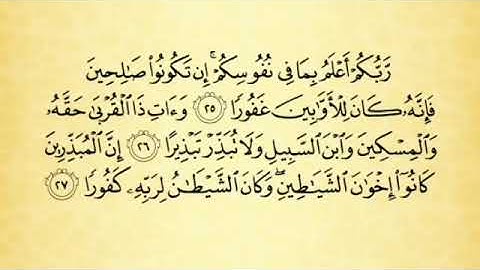 رَّبُّكُمْ أَعْلَمُ بِمَا فِى نُفُوسِكُمْ ۚ إِن تَكُونُوا۟ صَـٰلِحِينَ
فَإِنَّهُۥ كَانَ لِلْأَوَّٰبِينَ غَفُورًا ٢٥ وَءَاتِ ذَا ٱلْقُرْبَىٰ حَقَّهُۥ
وَٱلْمِسْكِينَ وَٱبْنَ ٱلسَّبِيلِ وَلَا تُبَذِّرْ تَبْذِيرًا ٢٦ إِنَّ ٱلْمُبَذِّرِينَ
كَانُوٓا۟ إِخْوَٰنَ ٱلشَّيَـٰطِينِ ۖ وَكَانَ ٱلشَّيْطَـٰنُ لِرَبِّهِۦ كَفُورًا ٢٧